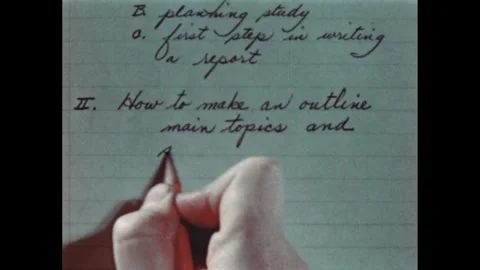 B. planning study
C. first step in writing
a report
II. How to make an outline
main topics and